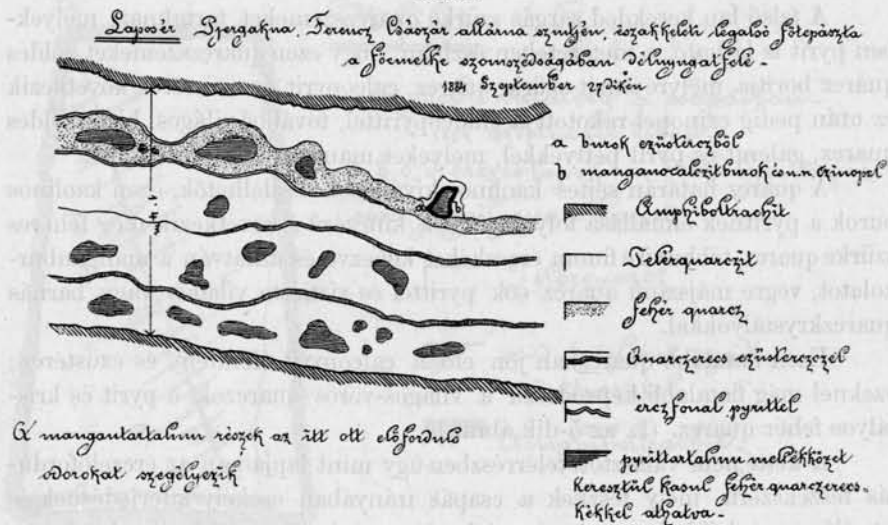 Laposér Pjergakna Ferencz császár altárna szintjén, északkeleti legalsó főtepászta
a főmellke szomszédságában délnyugat felé -
1884 Szeptember
a burok ezüstérczből
b
Amphiboltrachit
Telérquarczit
fehér quarcz
Quarczeres ezüsterczczel
érczfonal pyrittel
pyrittartalmu mellékközet
keresztül kasul fehér quarczeres-
kékkel áthatva.
A mangantartalmu részek az itt ott előforduló
odorokat szegélyezik